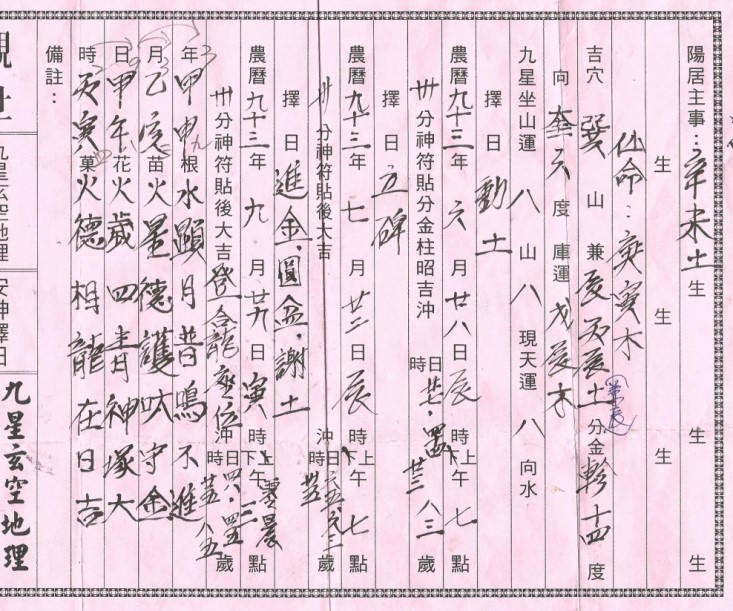 陽居主事：辛未土生 生 生
生 生 生
仙命：庚寅木
吉穴 巽 山 兼 亥 丙辰土 分金 軫十四 度
向 奎六 度 庫運 戊辰木
九星坐山運 八 山 八 現天運 八 向水
擇日 動土
農曆九十三年 六 月 廿八 日 辰 時上下午 七 點
卅分神符貼分金柱昭吉沖 日時 歲
擇日 立碑
農曆九十三年 七 月 廿二 日 辰 時上下午 七 點
卅分神符貼後大吉 沖日時 歲
擇日 進金，圓盆，謝土
農曆九十三年 九 月 廿九 日 寅 時上下午 三 點 凌晨
卅分神符貼後大吉 登合龍座位 沖日時 歲
年甲申根水顯月普鳴不進
月乙亥苗火星德護 守金
日甲午花火歲四青神塚大
時丙寅菓火德相龍在日吉
備註：
九星玄空地理
安神擇日
九星玄空地理